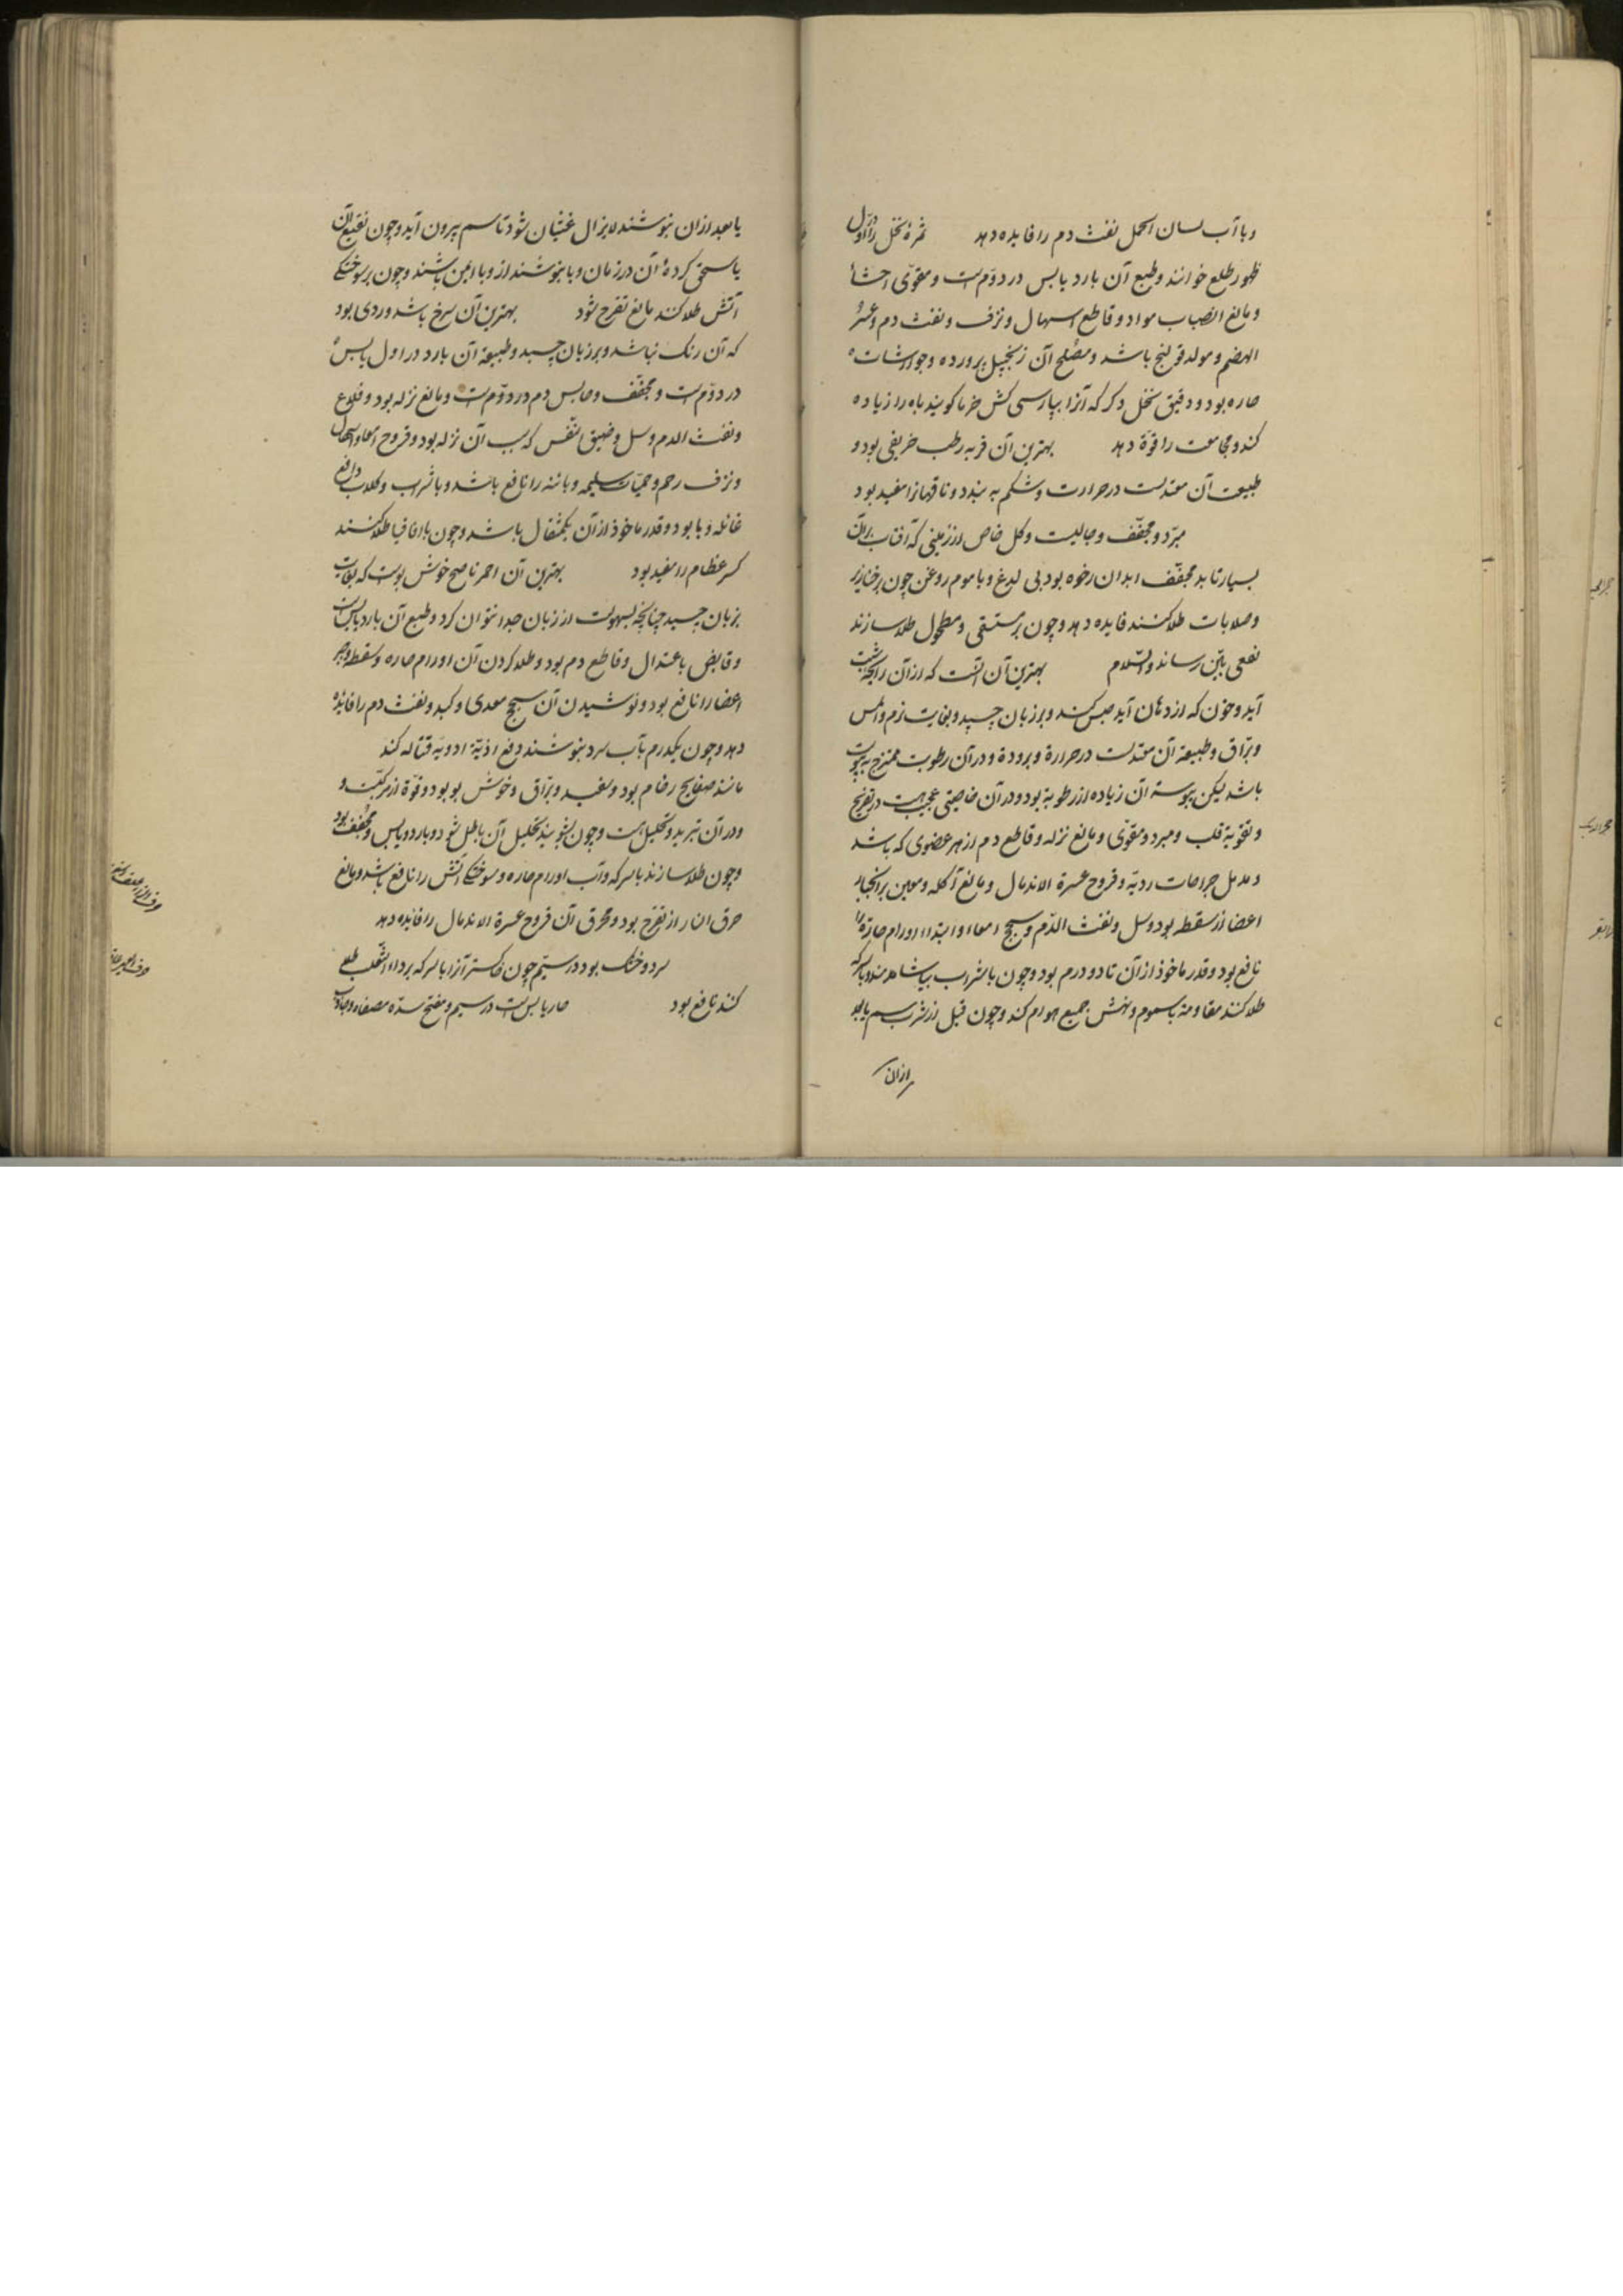 و با آب لسان الحمل نفث دم را فایده دهد ثمرهٔ نخل را در اول
ظهور طلع خوانند و طبع آن بارد یابس در دوّم است و مقوّی احشا
و مانع انصباب مواد و قاطع اسهال و نزف و نفث دم و عسر
الهضم و مولد قولنج باشد و مصلح آن زنجبیل پرورده و جوارشات
حاره بود و دقیق نخل ذکر که آنرا بپارسی کش خرما کویند باه را زیاده
کند و مجامعت را قوّة دهد بهترین آن فربه رطب خریفی بود و
طبیعت آن معتدلست در حرارت و شکم به بندد و ناقهانرا مفید بود
مبرّد و مجفّف و جالیست و کل خاص از زمینی که آفتاب بر آن
بسیار تابد مجفّف ابدان رخوه بود بی لدغ و با موم روغن چون بر خنازیر
و صلابات طلا کنند فایده دهد و چون بر مستسقی و مطحول طلا سازند
نفعی باین رساند والسّلام بهترین آن آنست که از آن رایحهٔ شبت
آید و خون که از دهان آید حبس کند و بر زبان چسپد و بغایت نرم و املس
و برّاق و طبیعة آن معتدلست در حرارة و برودة و در آن رطوبت ممتزج به یبوست
باشد لیکن یبوسة آن زیاده از رطوبة بود و در آن خاصیتی عجیب هست در تفریح
و تقویة قلب و مبرد و مقوّی و مانع نزله و قاطع دم از هر عضوی که باشد
و مدمل جراحات ردیّه و قروح عسرة الاندمال و مانع آکله و معین بر انجبار
اعضا از سقطه بود و سل و نفث الدّم و سحج امعاء و ابتداء اورام حارّة را
نافع بود و قدر ماخوذ از آن تا دو درم بود و چون با شراب بیاشامند و با سرکه
طلا کنند مقاومة با سموم و نهش جمیع هوام کند و چون قبل از شرب سم یا بعد
از ان
یا بعد از ان بنوشند لایزال غثیان شود تا سم بیرون آید و چون نقیع آن
یا سحق کردهٔ آن در زمان وبا بنوشند از وبا ایمن باشند و چون بر سوختکی
آتش طلا کنند مانع تقرح شود بهترین آن سرخ باشد و ردی بود
که آن رنک نباشد و بر زبان چسبد و طبیعة آن بارد در اول یابس
در دوّم است و مجفّف و حابس دم در دوّم است و مانع نزله بود و قلاع
و نفث الدم و سل و ضیق النفس که سبب آن نزله بود و قروح امعا و اسهال
و نزف رحم و حمیّات سلیمه و بائنه را نافع باشد و با شراب و کلاب دافع
غائله وبا بود و قدر ماخوذ از آن یکمثقال باشد و چون با اقاقیا طلا کنند
کسر عظام را مفید بود بهترین آن احمر ناصح خوش بوست که بغایت
بزبان چسبد چنانچه بسهولت از زبان جدا نتوان کرد و طبع آن بارد یابس است
و قابض باعتدال و قاطع دم بود و طلا کردن آن اورام حاره و سقطه و جبر
اعضا را نافع بود و نوشیدن آن سحج معدی و کبد و نفث دم را فایده
دهد و چون یکدرم بآب سرد بنوشند دفع اذیّة ادویهٔ قتاله کند
مانند صفایح رخام بود و سفید و برّاق و خوش بو بود و قوّة از مرکبست و
و در آن تبرید و تحلیل است و چون بشویند تحلیل آن باطل شود و بارد و یابس و مجفّف بود
و چون طلا سازند با سرکه و آب اورام حاره و سوختکی آتش را نافع باشد و مانع
حرق النار از تقرّح بود و محرق آن قروح عسرة الاندمال را فائده دهد
سرد و خشک بود در سیّم چون خاکستر آنرا با سرکه بر داء الثعلب طلی
کنند نافع بود حار یابس است در سیم و مفتح سدّه مصفاه و جاذب